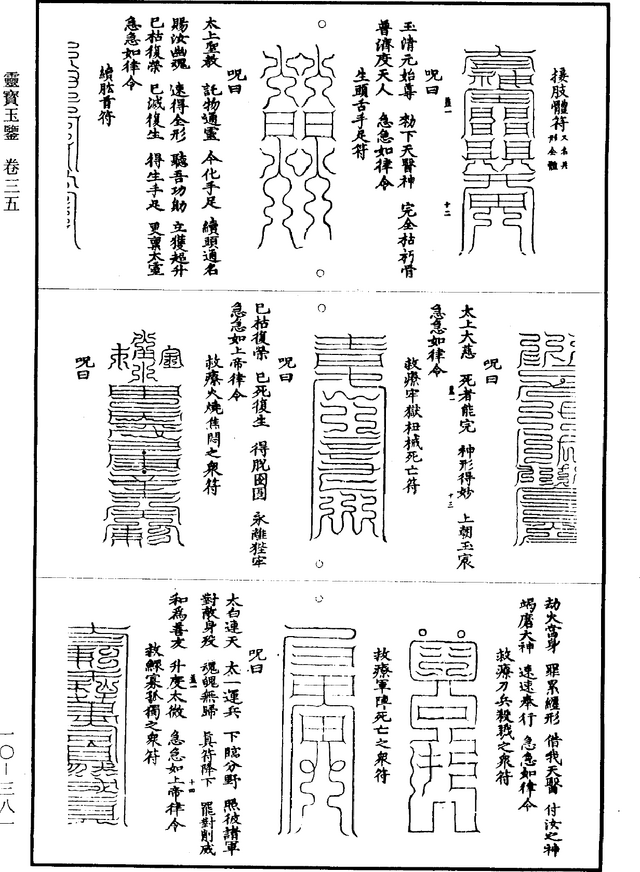 靈寶玉鑒 卷三五
接肢體符 又名再形全體
呪曰
玉清元始尊 勑下天醫神 完全枯朽骨
普濟度天人 急急如律令
生頭舌手足符
呪曰
太上聖教 託物通靈 令化手足 續頭通名
賜汝幽魂 速得全形 聽吾功勛 立獲超升
已枯復榮 已滅復生 得生手足 更稟太靈
急急如律令
續肱胷符
呪曰
太上大慈 死者能完 神形得妙 上朝玉宸
急急如律令
救療牢獄枉械死亡符
呪曰
已枯復榮 已死復生 得脫囹圄 永離狴牢
急急如上帝律令
救療火燒焦悶之衆符
呪曰
劫火當身 罪累纏形 借我天醫 付汝之神
竭磨大神 速速奉行 急急如律令
救療刀兵殺戮之衆符
救療軍陣死亡之衆符
呪曰
太白連天 太一運兵 下臨分野 照彼諸軍
對敵身歿 魂魄無歸 真符降下 罷對削威
和為善友 升度太微 急急如上帝律令
救鰥寡孤獨之衆符
一〇—三八一